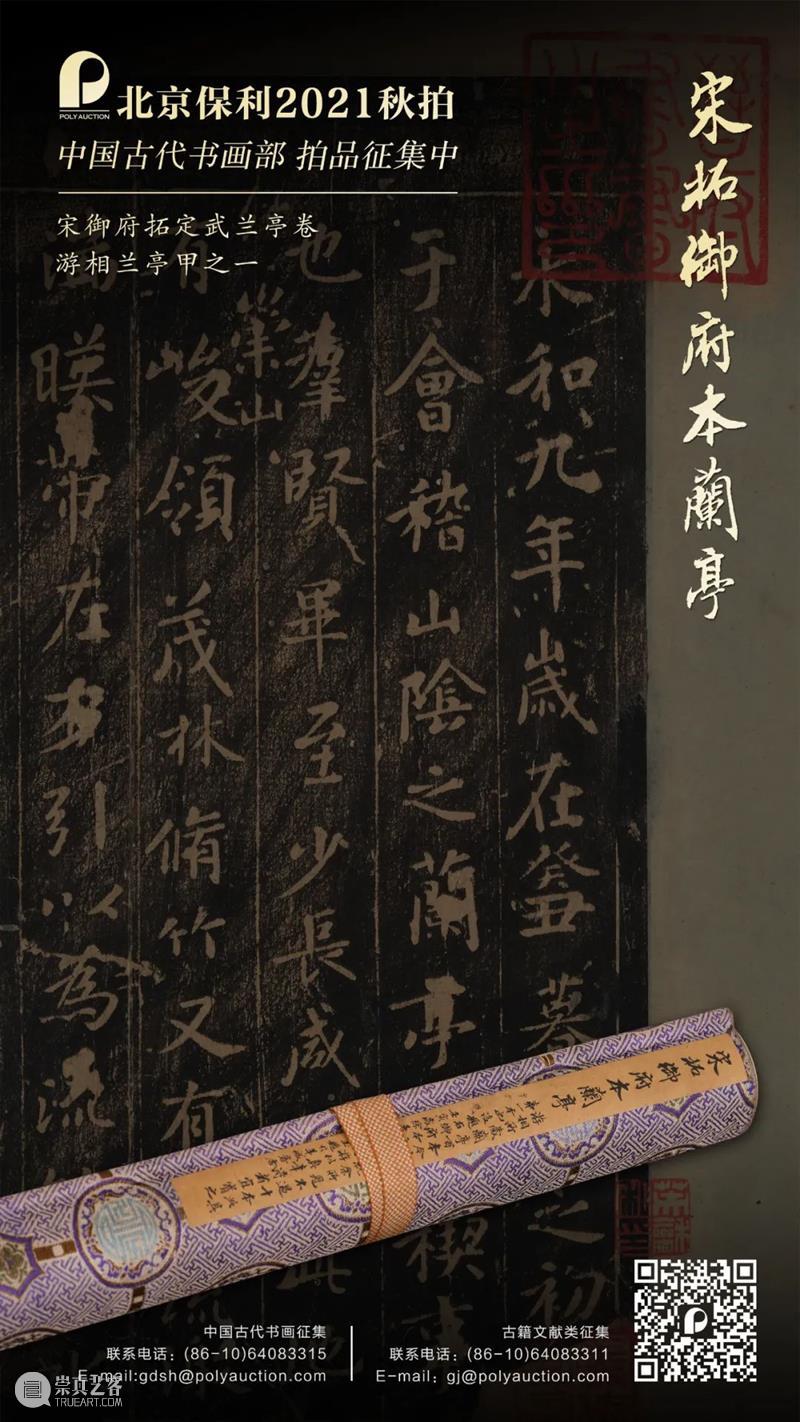 POLY AUCTION
北京保利2021秋拍
中国古代书画部 拍品征集中
宋御府拓定武兰亭卷
游相兰亭甲之一
宋拓御府本蘭亭
永和九年歲在癸丑暮
之初
于會稽山陰之蘭亭
禊事
也羣賢畢至少長咸
此地
有崇山
峻領茂林脩竹又有
暎帶在右引以為流
宋拓御府本蘭亭
中国古代书画征集
联系电话：(86-10)64083315
E-mail:gdsh@polyauction.com
古籍文献类征集
联系电话：(86-10)64083311
E-mail: gj@polyauction.com
崇真艺客
TRUEART.COM